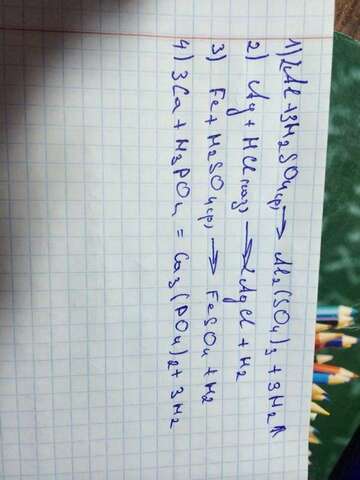 1) 2Al + 3H₂SO₄(р) → Al₂(SO₄)₃ + 3H₂↑
2) Ag + HCl(газ) → AgCl + H₂
3) Fe + H₂SO₄(р) → FeSO₄ + H₂
4) 3Ca + H₃PO₄ = Ca₃(PO₄)₂ + 3H₂